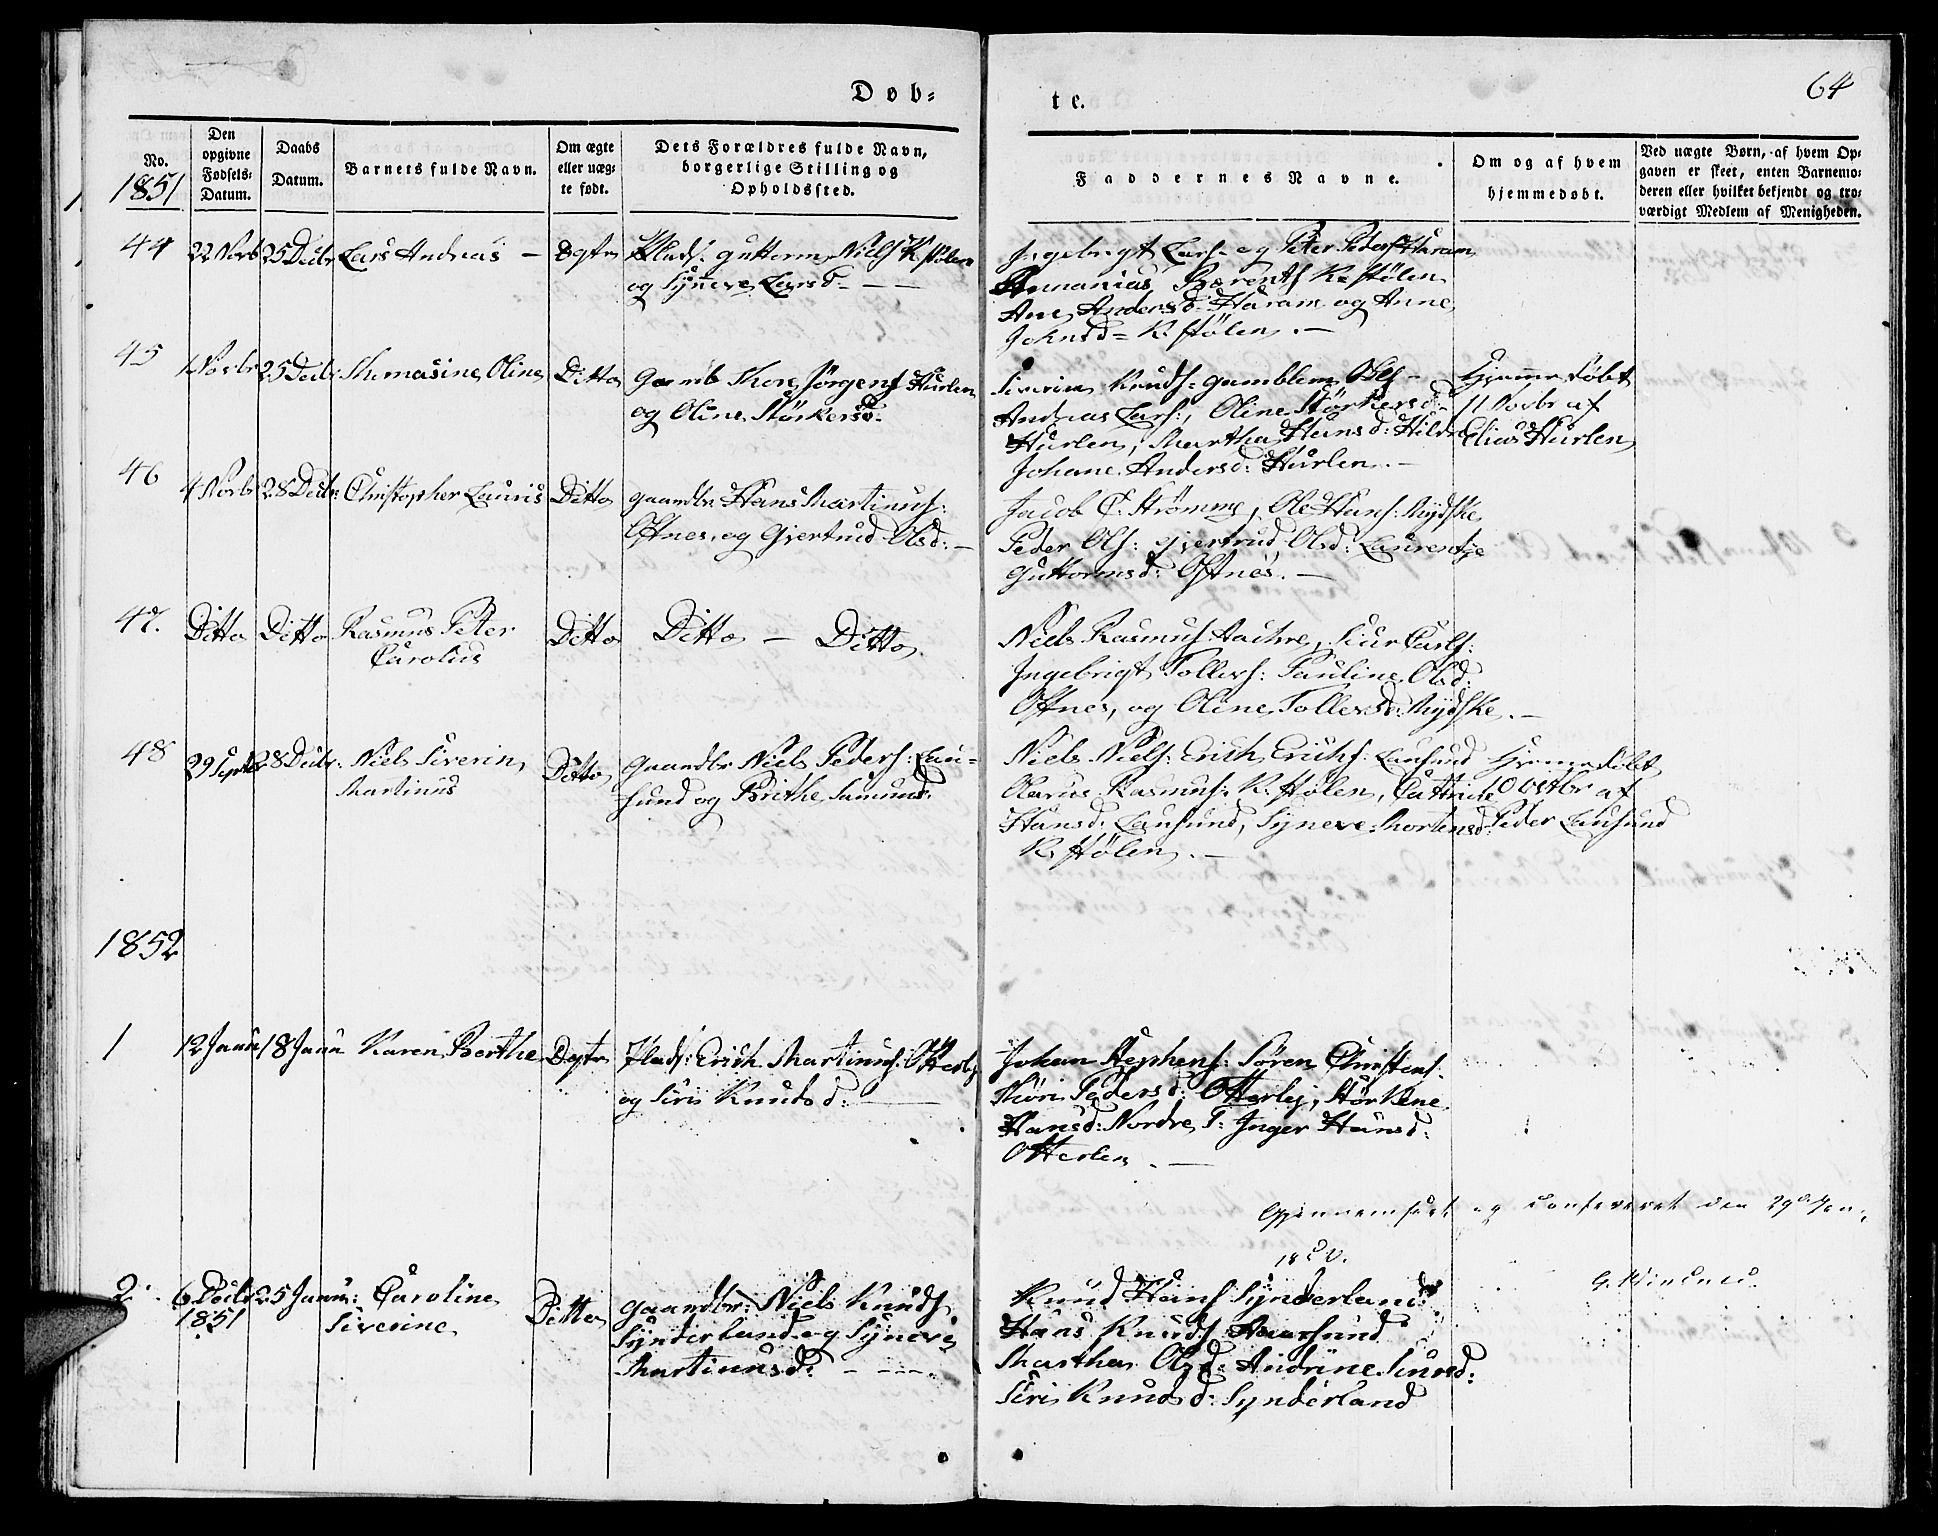 Døb-
te.
64
No.
Den opgivne Fødsels-Datum.
Daabs Datum.
Barnets fulde Navn.
Om ægte eller uæg-te født.
Dets Forældres fulde Navn, borgerlige Stilling og Opholdssted.
Faddernes Navne.
Om og af hvem hjemmedøbt.
Ved uægte Børn, af hvem Op-gaven er skeet, enten Barnemo-deren eller hvilket bekjendt og tro-værdigt Medlem af Menigheden.
1851
44 22 Novb 25 Decbr Lars Andreas — Ægte Pladsm: Guttorm Niels: K. stølen
og Synneve Larsd. — —
Ingebrigt Lars. og Peter Peders: Haram
Annanias Berents K. stølen
Ane Andersd. Haram og Anne
Johnsd = K. stølen. —
45 1 Novbr 25 Decbr Thomasine Oline Ditto Gaardb Thore Jørgens: Hurlen
og Oline Størkersd.
Siverin Knuds: Gamblem Ols —
Andreas Lars:, Oline Størkersd:
Hurlen, Martha Hansd: Hildre
Johane Andersd: Hurlen. —
Hjemmedøbt
11 Novbr af
Elias Hurlen
46 4 Novbr 28 Decbr: Christopher Lauris Ditto Gaardbr: Hans Martinus:
Oftnes, og Gjertrud Olsd: —
Jacob C. Strømme, Ole Hans: Mydske
Peder Ols: Gjertrud Olsd: Laurentze
Guttormsd: Oftnes. —
47. Ditto Ditto Rasmus Peter
Carolius
Ditto Ditto — Ditto
Niels Rasmus: Siur Carls:
Ingebrigt Tollevs: Pauline Olsd:
Oftnes, og Oline Tollevsd: Mydske. —
48 29 Septb 28 Decbr: Niels Siverin
Martinus
Ditto Gaardbr Niels Peders: Lau-
sund og Brithe Samunds.
Niels Niels: Erich Erichs: Lausund
Olarus Rasmus: K. stølen, Cathrine
Hansd: Lausund, Syneve Mortensd:
K. stølen. —
Hjemmedøbt
10 Octbr af
Peder Lausund
1852
1 12 Janu 18 Janu Karen Berthe Ægte Plads: Erich Martinus: Otterlej
og Siri Knudsd: —
Johan Stephens: Søren Christens:
Siøri Pedersd: Otterlej, Størkene
Hansd: Nordre T: Inger Hansd:
Otterlen. —
Gjennemseet og confereret den 29de Jan.
1852.
2. 6 Decbr
1851
25 Janu: Caroline
Siverine
Ditto Gaardbr: Niels Knuds
Synderland og Syneve
Martinusd: — — —
Knud Hans Synderland:
Hans Knuds: Aarsund
Martha Olsd: Andrine
Siri Knudsd: Synderland